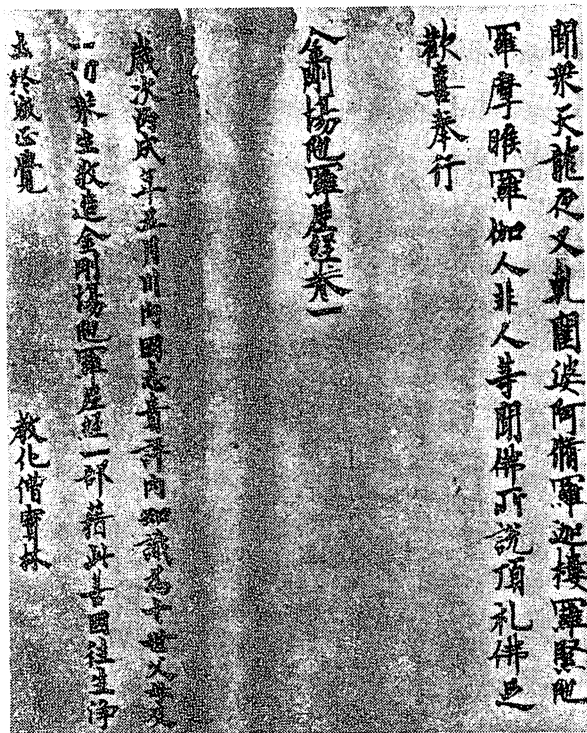 聞衆天龍夜叉乹闥婆阿脩羅迦樓羅緊陁
羅摩睺羅伽人非人等聞佛所說頂礼佛足
歡喜奉行
金剛場陁羅尼經卷一
歳次丙戌年五月川內國志貴評內知識為七世父母及
一切衆生敬造金剛場陁羅尼經一部藉此善因往生浄
土終成正覺
教化僧寶林